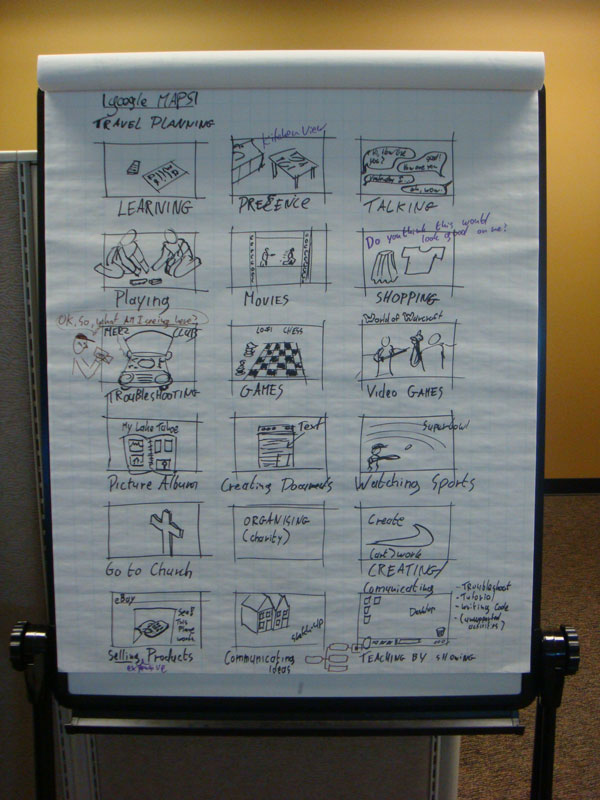 [google MAPS]
TRAVEL PLANNING
LEARNING
Kitchen View
PRECENCE
Hi, How are you?
good!
How are you
yesterday I...
oh, wow
TALKING
Playing
MOVIES
Do you think this would
look good on me?
SHOPPING
OK, So, what AM I seeing here?
MERZ
CLUB
TROUBLESHOOTING
CHESS
GAMES
World of Warcraft
Video GAMES
My Lake Tahoe
Picture Album
Text
Creating Documents
Superbowl
Watching Sports
Go to Church
ORGANISING
(charity)
Create
(art) work
CREATING/
eBay
See?
This
Phone
works
Selling Products
Sketch-Up
Communicating
Ideas
Comunicating
Desktop
TEACHING BY SHOWING
- TROUBLESHOOT
- Tutorial
- Writing Code
- (unsupported
activities?)